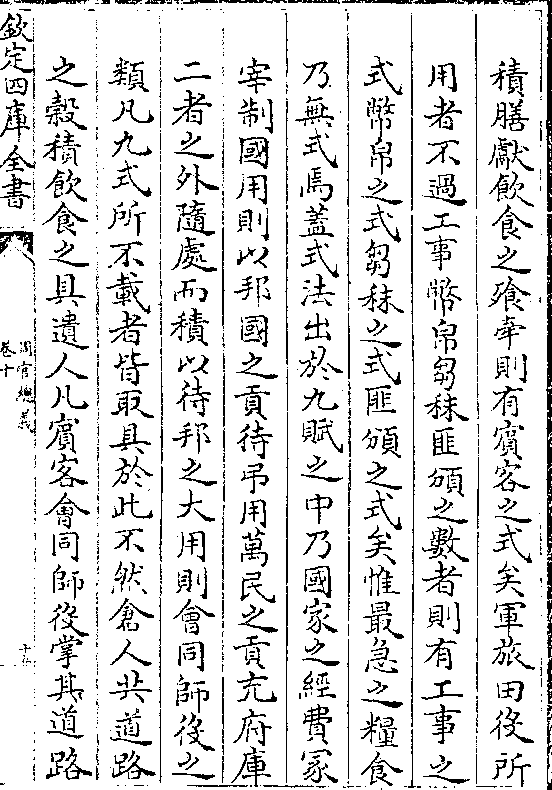 積膳獻飲食之飱牽則有賓客之式矣軍旅田役所
用者不過工事幣帛芻秣匪頒之數者則有工事之
式幣帛之式芻秣之式匪頒之式矣惟最急之糧食
乃無式焉蓋式法出於九賦之中乃國家之經費冢
宰制國用則以邦國之貢待弔用萬民之貢充府庫
二者之外隨處而積以待邦之大用則會同師役之
類凡九式所不載者皆取具於此不然倉人共道路
之榖積飲食之具遺人凡賓客會同師役掌其道路
欽定四庫全書
周官總義
卷十
十五